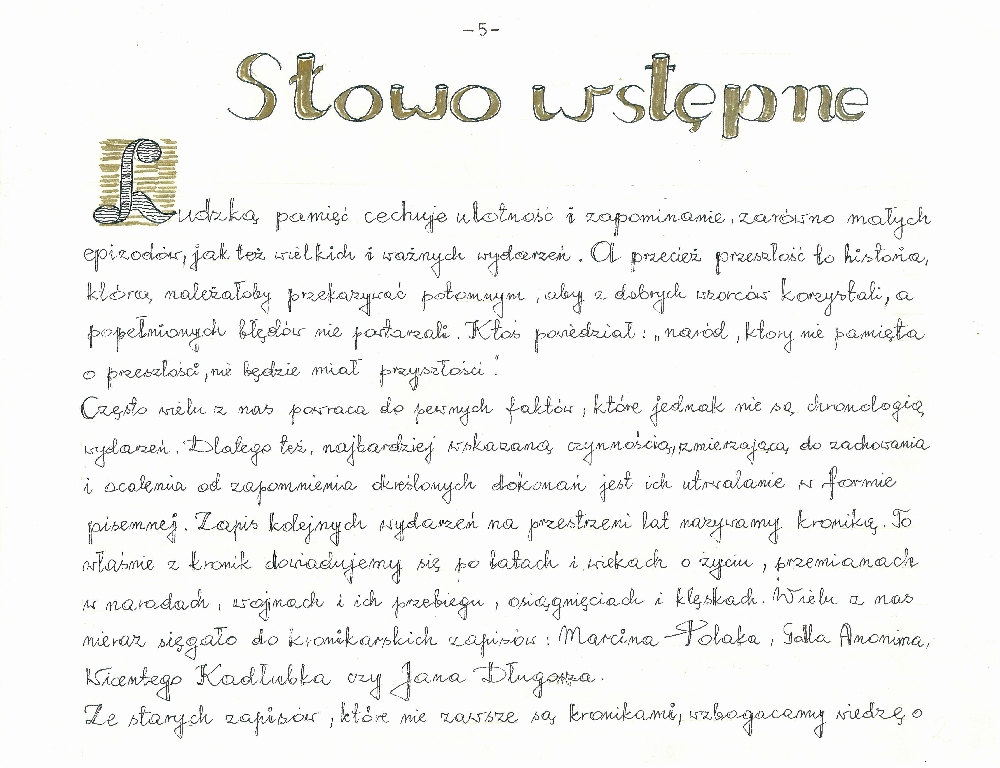 -5-
Słowo wstępne
Ludzką pamięć cechuje ulotność i zapominanie, zarówno małych
epizodów, jak też wielkich i ważnych wydarzeń. A przecież przeszłość to historia,
którą należałoby przekazywać potomnym, aby z dobrych wzorców korzystali, a
popełnionych błędów nie powtarzali. Ktoś powiedział: „naród, który nie pamięta
o przeszłości, nie będzie miał przyszłości".
Często wielu z nas powraca do pewnych faktów, które jednak nie są chronologią
wydarzeń. Dlatego też, najbardziej wskazaną czynnością, zmierzającą do zachowania
i ocalenia od zapomnienia określonych dokonań jest ich utrwalanie w formie
pisemnej. Zapis kolejnych wydarzeń na przestrzeni lat nazywamy kroniką. To
właśnie z kronik dowiadujemy się po latach i wiekach o życiu, przemianach
w narodach, wojnach i ich przebiegu, osiągnięciach i klęskach. Wielu z nas
nieraz sięgało do kronikarskich zapisów: Marcina Polaka, Galla Anonima,
Wicentego Kadłubka czy Jana Długosza.
Ze starych zapisów, które nie zawsze są kronikami, wzbogacamy wiedzę o